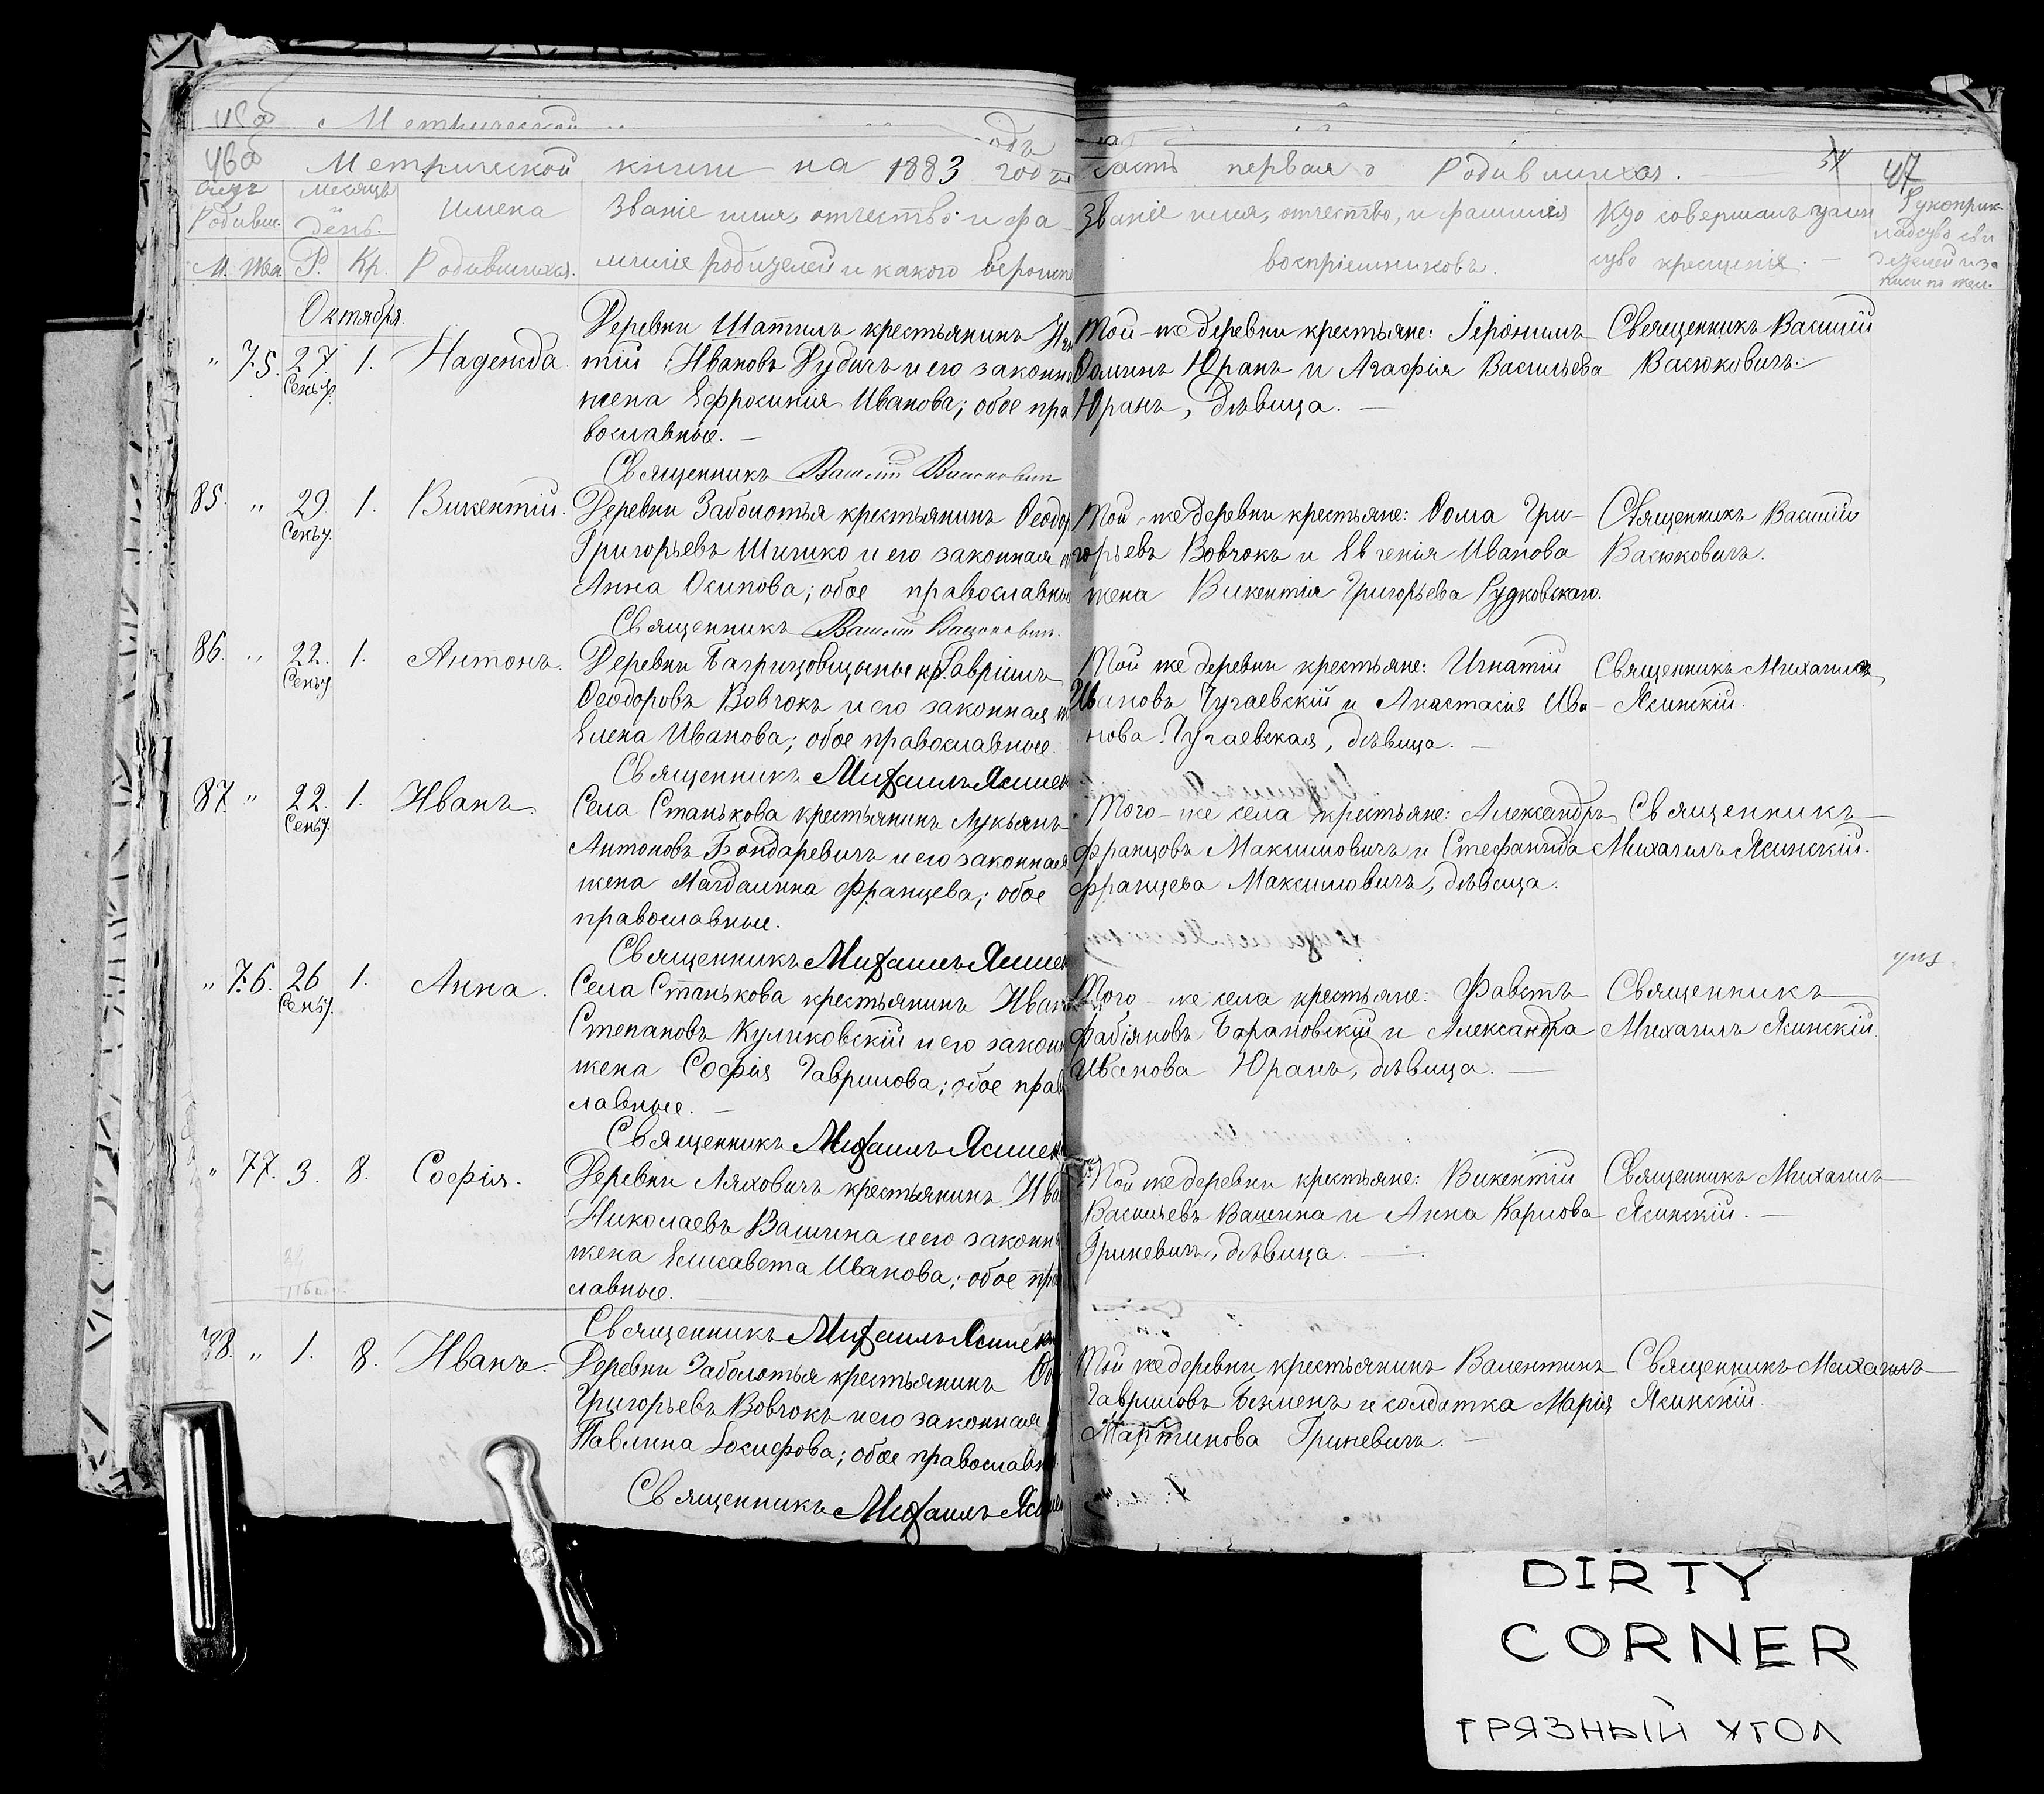 46об Метрической книги на 1883 годъ часть первая о Родившихся. 47
Счетъ Родивш.
М. Жен.
Месяцъ и день.
Р. Кр.
Имена Родившихся.
Званіе имя, отчество и фа-
миліе родителей и какого вероисп
Званіе имя, отчество, и фамилія
воспріемниковъ.
Кто совершалъ таин
ство крещенія. —
Рукоприк-
ладство сви
детелей и за
писи по жел.
Октября.
" 75. 27. Сент. 1. Надежда.
Деревни Шатилъ крестьянинъ Игн
тій Ивановъ Рудичъ и его законн
жена Ефросинія Иванова; обое пра
вославные. —
Священникъ Василій Васюковичъ
Той-же деревни крестьяне: Іеронимъ
Ѳоминъ Юранъ и Агафія Васильева
Юранъ, дѣвица. —
Священникъ Василій
Васюковичъ.
85. " 29. Сент. 1. Викентій.
Деревни Заболотья крестьянинъ Ѳеодо
Григорьевъ Шишко и его законная
Анна Осипова; обое православны
Священникъ Василій Васюковичъ.
Той-же деревни крестьяне: Ѳома Гри-
горьевъ Вовчокъ и Евгенія Иванова
жена Викентія Григорьева Рудковскаго.
Священникъ Василій
Васюковичъ.
86. " 22. Сент. 1. Антонъ.
Деревни кр. Гавріилъ
Ѳеодоровъ Вовчокъ и его законная
Елена Иванова; обое православные.
Священникъ Михаилъ Ясинск
Той же деревни крестьяне: Игнатій
Ивановъ Чучаевскій и Анастасія Ива-
нова Чучаевская, дѣвица. —
Священникъ Михаилъ
Ясинскій.
87. " 22. Сент. 1. Иванъ.
Села Станькова крестьянинъ Лукьянъ
Антоновъ Бондаревичъ и его законная
жена Магдалина Францева; обое
православные.
Священникъ Михаилъ Ясинск
Того-же села крестьяне: Александръ
Францовъ Максимовичъ и Стефанида
Францева Максимовичъ, дѣвица.
Священникъ
Михаилъ Ясинскій.
" 76. 26 Сент. 1. Анна.
Села Станькова крестьянинъ Иван
Степановъ Куликовскій и его законн
жена Софія Гаврилова; обое прав
лавные. —
Священникъ Михаилъ Ясинск
Того же села крестьяне: Фавстъ
Фабіяновъ Барановскій и Александра
Иванова Юранъ, дѣвица. —
Священникъ
Михаилъ Ясинскій.
" 77. 3. 8. Софія.
Деревни Ляховичъ крестьянинъ Ива
Николаевъ Вашина и его законн
жена Елисавета Иванова; обое пра
лавные. —
Священникъ Михаилъ Ясинск
Той же деревни крестьяне: Викентій
Васильевъ Вашина и Анна Карлова
Гриневичъ, дѣвица. —
Священникъ Михаилъ
Ясинскій. —
88. " 1. 8. Иванъ.
Деревни Заболотья крестьянинъ Ѳо
Григорьевъ Вовчокъ и его законная
Павлина Іосифова; обое православн
Священникъ Михаилъ Ясин
Той же деревни крестьянинъ Валентинъ
Гавриловъ Безменъ и солдатка Марія
Мартинова Гриневичъ. —
Священникъ Михаилъ
Ясинскій.
DIRTY
CORNER
ГРЯЗНЫЙ УГОЛ